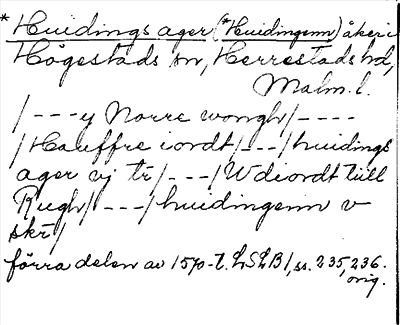 * Huidings ager (*Huidingenn) åker i
Högestads sn, Herrestads hd,
Malm. l.
/---y Norre wongh/----
/Hauffre iordt/---/huidings
ager vj tr/---/Wdiordt tiill
Rugh/---/huidingenn v
skr/
förra delen av 1570-t. LSLB1, ss. 235, 236.
orig.